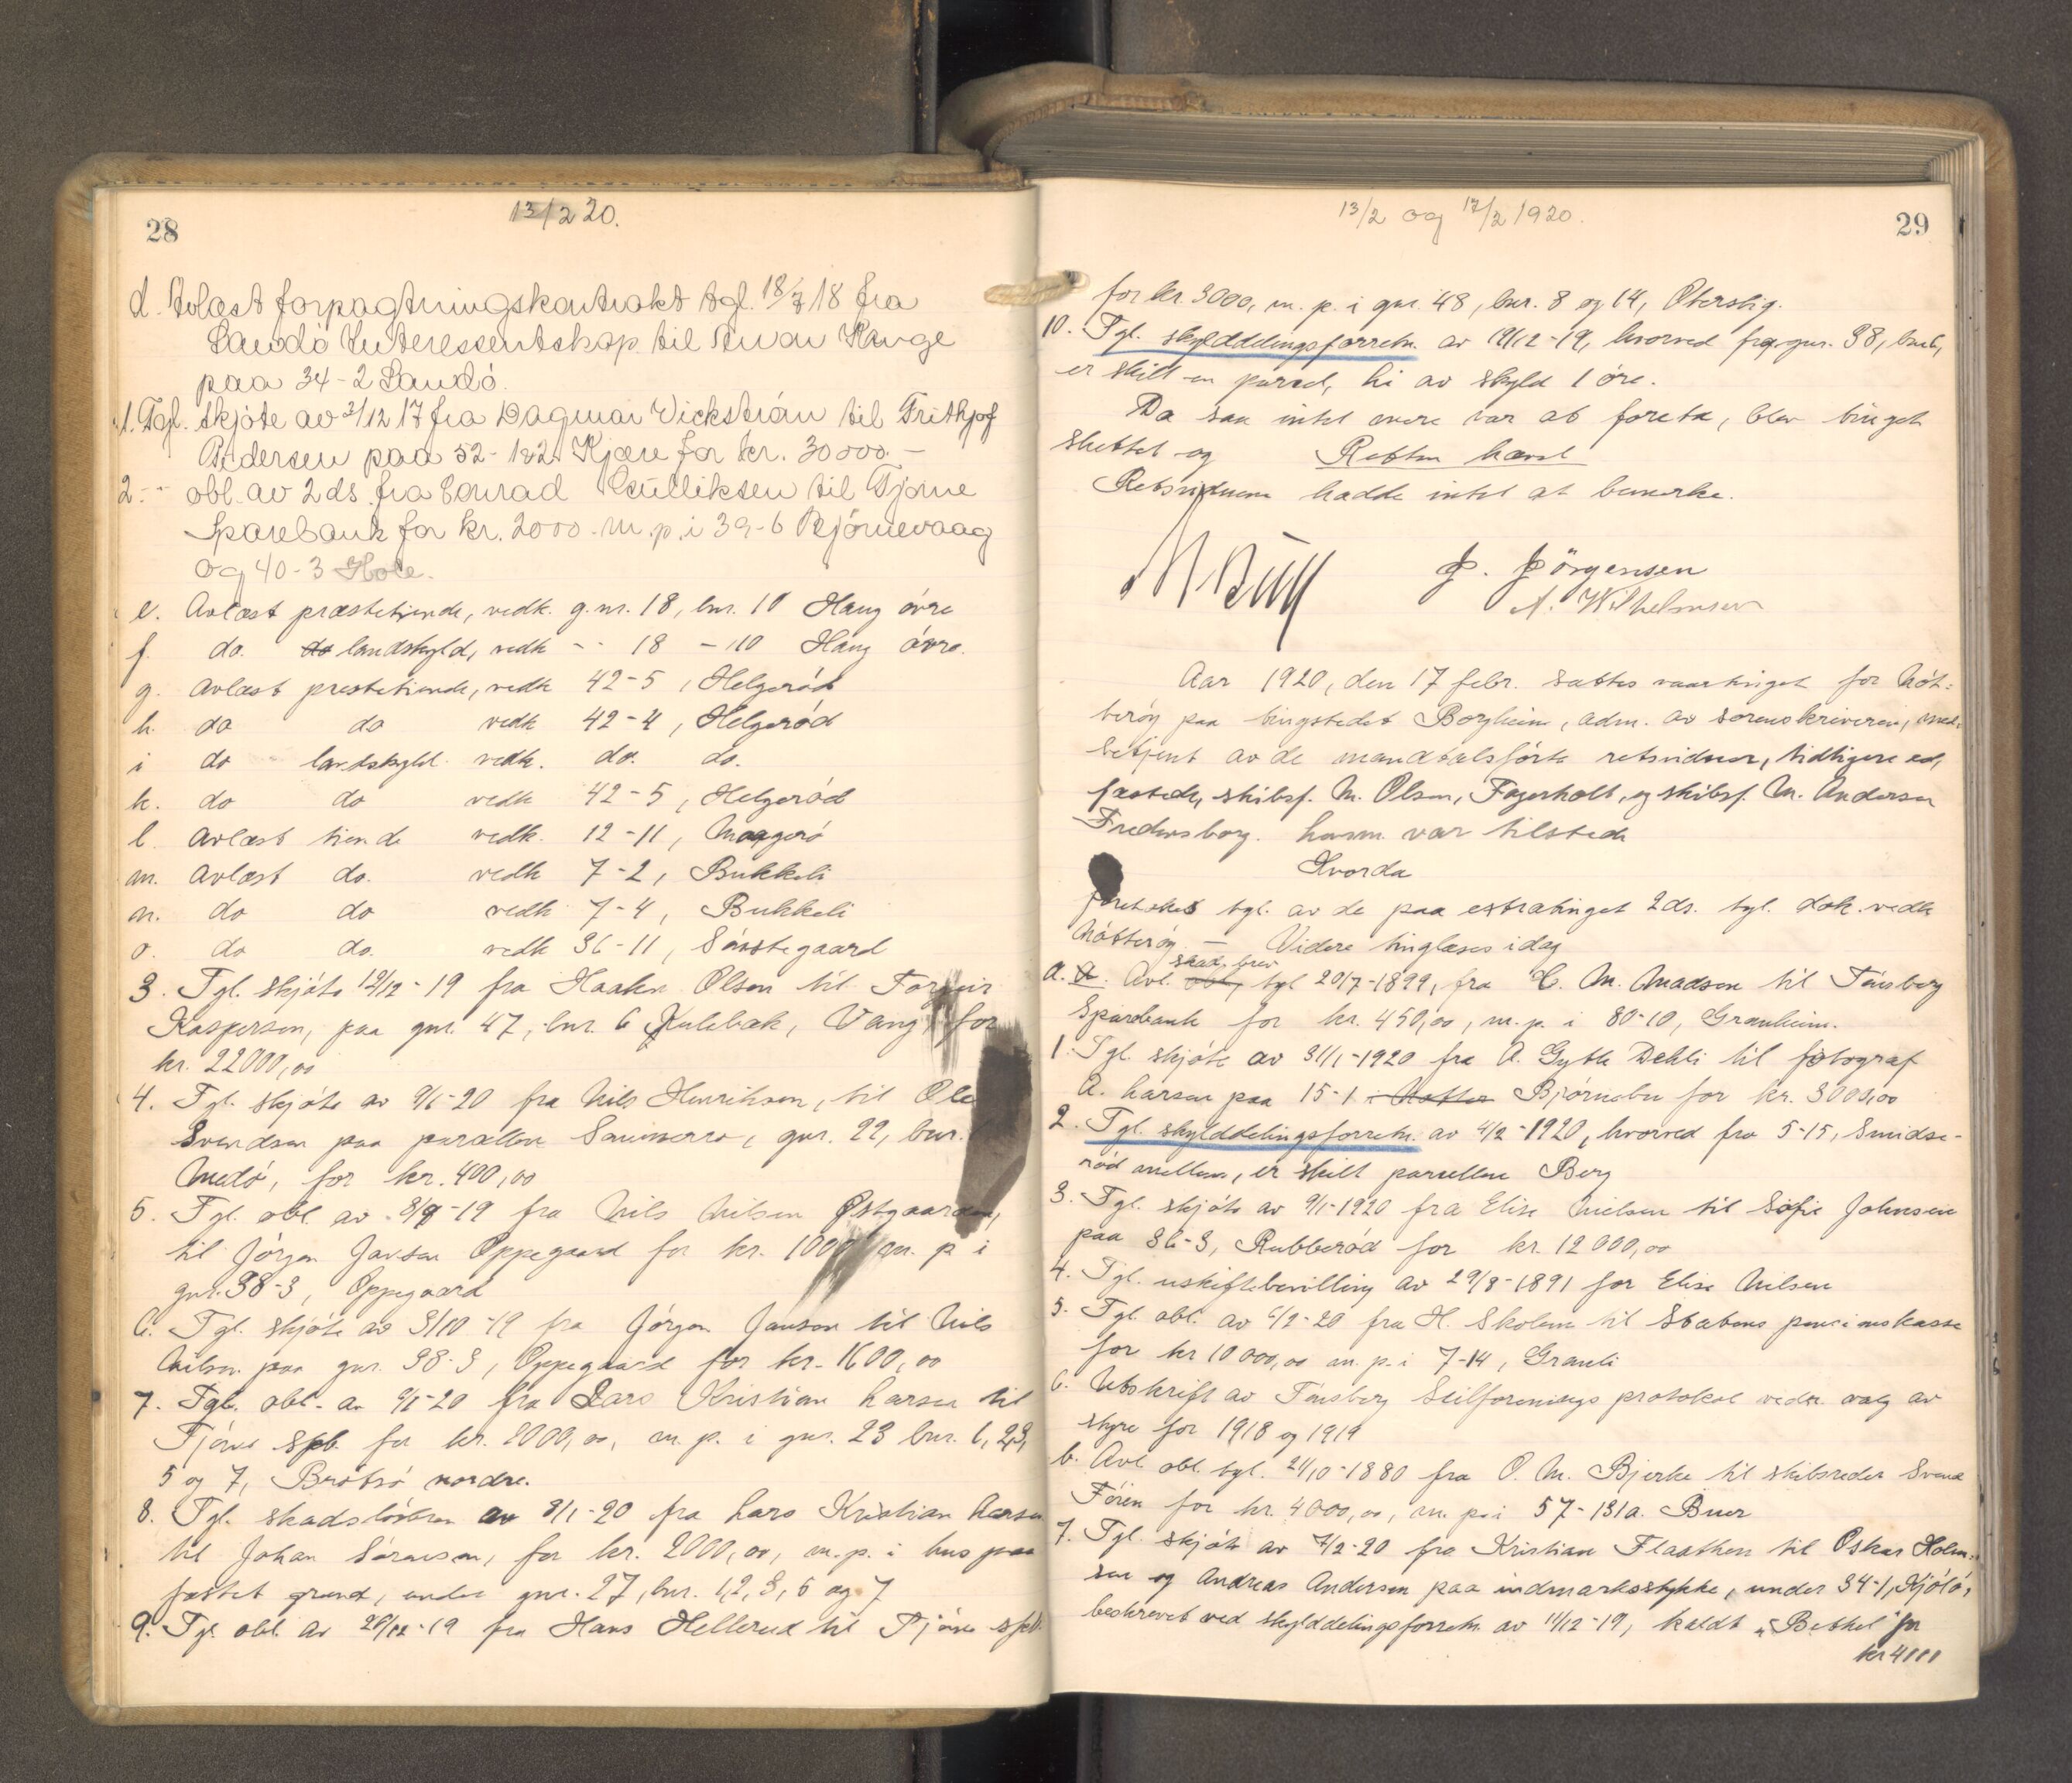 28
13/2 20.
d. Avlæst forpagtningskontrakt tgl. 18/7 18 fra
Sandö Interessentskap til Einar Hauge
paa 34-2 Sandö.
1. Tgl. skjöte av 3/12 17 fra Dagmar Vickström til Frithjof
Pedersen paa 52-122 Kjære for kr. 30000.-
2. -"- obl. av 2 ds. fra Konrad Gulliksen til Tjöme
Sparebank for kr. 2000.- m.p. i 39-6 Björnevaag
og 40-3 Hole.
e. Avlæst præstetiende, vedk. g.nr. 18, bnr. 10 Haug övre
f. do. do landskyld, vedk -- 18 - 10 Haug övre.
g. Avlæst prestetiende, vedk 42-5, Helgeröd
h. do do vedk 42-4, Helgeröd
i do landskyld vedk. do. do.
k. do do vedk 42-5, Helgeröd
l. Avlæst tiende vedk. 12-11, Maagerö
m. Avlæst do. vedk 7-2, Bukkeli
n. do do vedk 7-4, Bukkeli
o. do do. vedk 36-11, Sörstegaard
3. Tgl. skjöte 12/12-19 fra Haakon Olsen til Torgeir
Kaspersen, paa gnr. 47, bnr. 6 Kulebak, Vang, for
kr. 22000,00
4. Tgl. skjöte av 9/1-20 fra Nils Henriksen, til Ole
Svendsen paa parcellen Sommerro, gnr. 22, bnr.
Medö, for kr. 400,00
5. Tgl. obl. av 8/9-19 fra Nils Nilsen Østgaarden,
til Jörgen Jansen Oppegaard for kr. 1000 m. p i
gnr. 38-3, Oppegaard
6. Tgl. skjöte av 3/10-19 fra Jörgen Jansen til Nils
Nilsen paa gnr. 38-3, Oppegaard for kr. 1600,00
7. Tgl. obl. av 9/1-20 fra Lars Kristian Larsen til
Tjöme Spb. for kr. 2000,00, m. p. i gnr. 23 bnr. 1, 2, 3,
5 og 7, Brötsö nordre.
8. Tgl. skadeslösbrev av 9/1-20 fra Lars Kristian Larsen
til Johan Sörensen, for kr. 2000,00, m.p. i hus paa
fæstet grund, under gnr. 27, bnr. 1, 2, 3, 5 og 7
9. Tgl. obl. av 20/12-19 fra Hans Hellerud til Tjöme spb.
13/2 og 17/2 1920.
29
for kr. 3000, m. p. i gnr. 48, bnr. 8 og 14, Oterstig.
10. Tgl. skylddelingsforretn. av 19/12-19, hvorved fra gnr. 38, bnr. 6,
er skilt en parcel, Li av skyld 1 öre.
Da saa intet mere var at foreta, blev tinget
sluttet og Retten hævet
Retsvidnene hadde intet at bemerke.
J. Jörgensen
A. Wilhelmsen
Aar 1920, den 17 febr. sattes vaartinget for Nöt-
teröy paa tingstedet Borgheim, adm. av sorenskriveren, med-
betjent av de mandtalsförte retsvidner, tidligere ed-
fæstede, skibsf. M. Olsen, Fagerholt, og skibsf. M. Andersen
Fredensborg. Lensm. var tilstede
Hvorda
foretokes tgl. av de paa extratinget 2 ds. tgl. dok. vedk
Nötteröy. - Videre tinglæses idag
skad. brev
a. a. Avl. obl, tgl 20/7-1899, fra C. M. Madsen til Tönsberg
Sparebank for kr. 450,00, m.p. i 80-10, Granheim.
1. Tgl. skjöte av 31/1-1920 fra A. Gythe Dehli til fotograf
A. Larsen paa 15-1 Nötterö Bjørnebu for kr. 3000,00
2. Tgl. skylddelingsforretn. av 4/2-1920, hvorved fra 5-15, Smidse-
röd mellem, er skilt parcellen Berg
3. Tgl. skjöte av 9/1-1920 fra Elise Nielsen til Sofie Johnsen
paa 36-3, Rubberöd for kr. 12000,00
4. Tgl. uskiftebevilling av 29/8-1891 for Elise Nilsen
5. Tgl. obl. av 6/2-20 fra H. Skolem til Statens pensionskasse
for kr 10000,00 m. p. i 7-14, Granli
6. Utskrift av Tönsberg Seilforenings protokol vedr. valg av
styre for 1918 og 1919
b. Avl. obl. tgl. 21/10-1880 fra O. M. Bjerke til skibsreder Svend
Föyn for kr. 4000,00, m. p. i 57-131a. Buer
7. Tgl. skjöte av 7/2-20 fra Kristian Flaathen til Oskar Holm-
sen og Andreas Andersen paa indmarksstykke, under 34-1, Kjölö,
beskrevet ved skylddelingsforretn. av 11/12-19, kaldt "Bethel" for
kr 4000